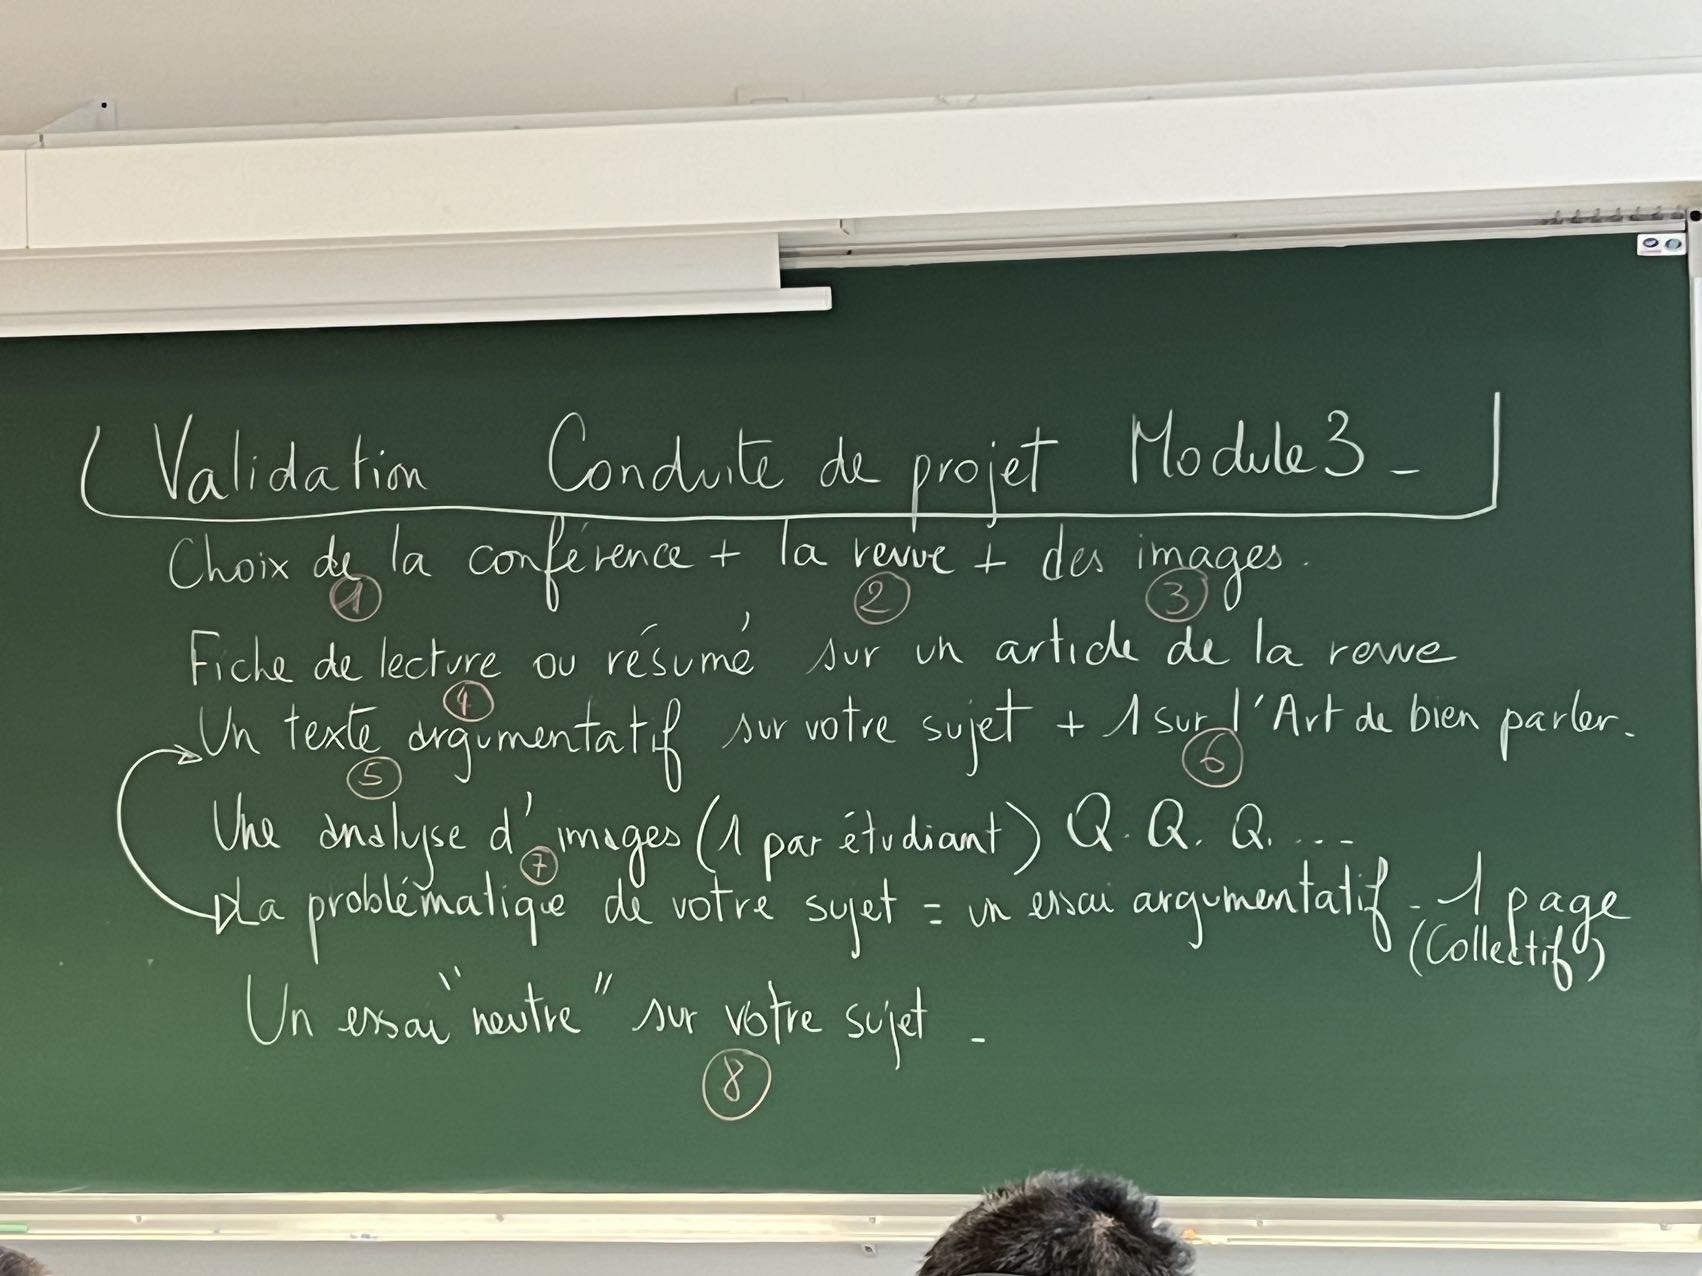 Validation Conduite de projet Module 3 -
Choix de la conférence + la revue + des images.
1 2 3
Fiche de lecture ou résumé sur un article de la revue
4
Un texte argumentatif sur votre sujet + 1 sur l'Art de bien parler.
5 6
Une analyse d'images (1 par étudiant) Q. Q. Q. ...
7
La problématique de votre sujet = un essai argumentatif - 1 page
(Collectif)
Un essai "neutre" sur votre sujet -
8